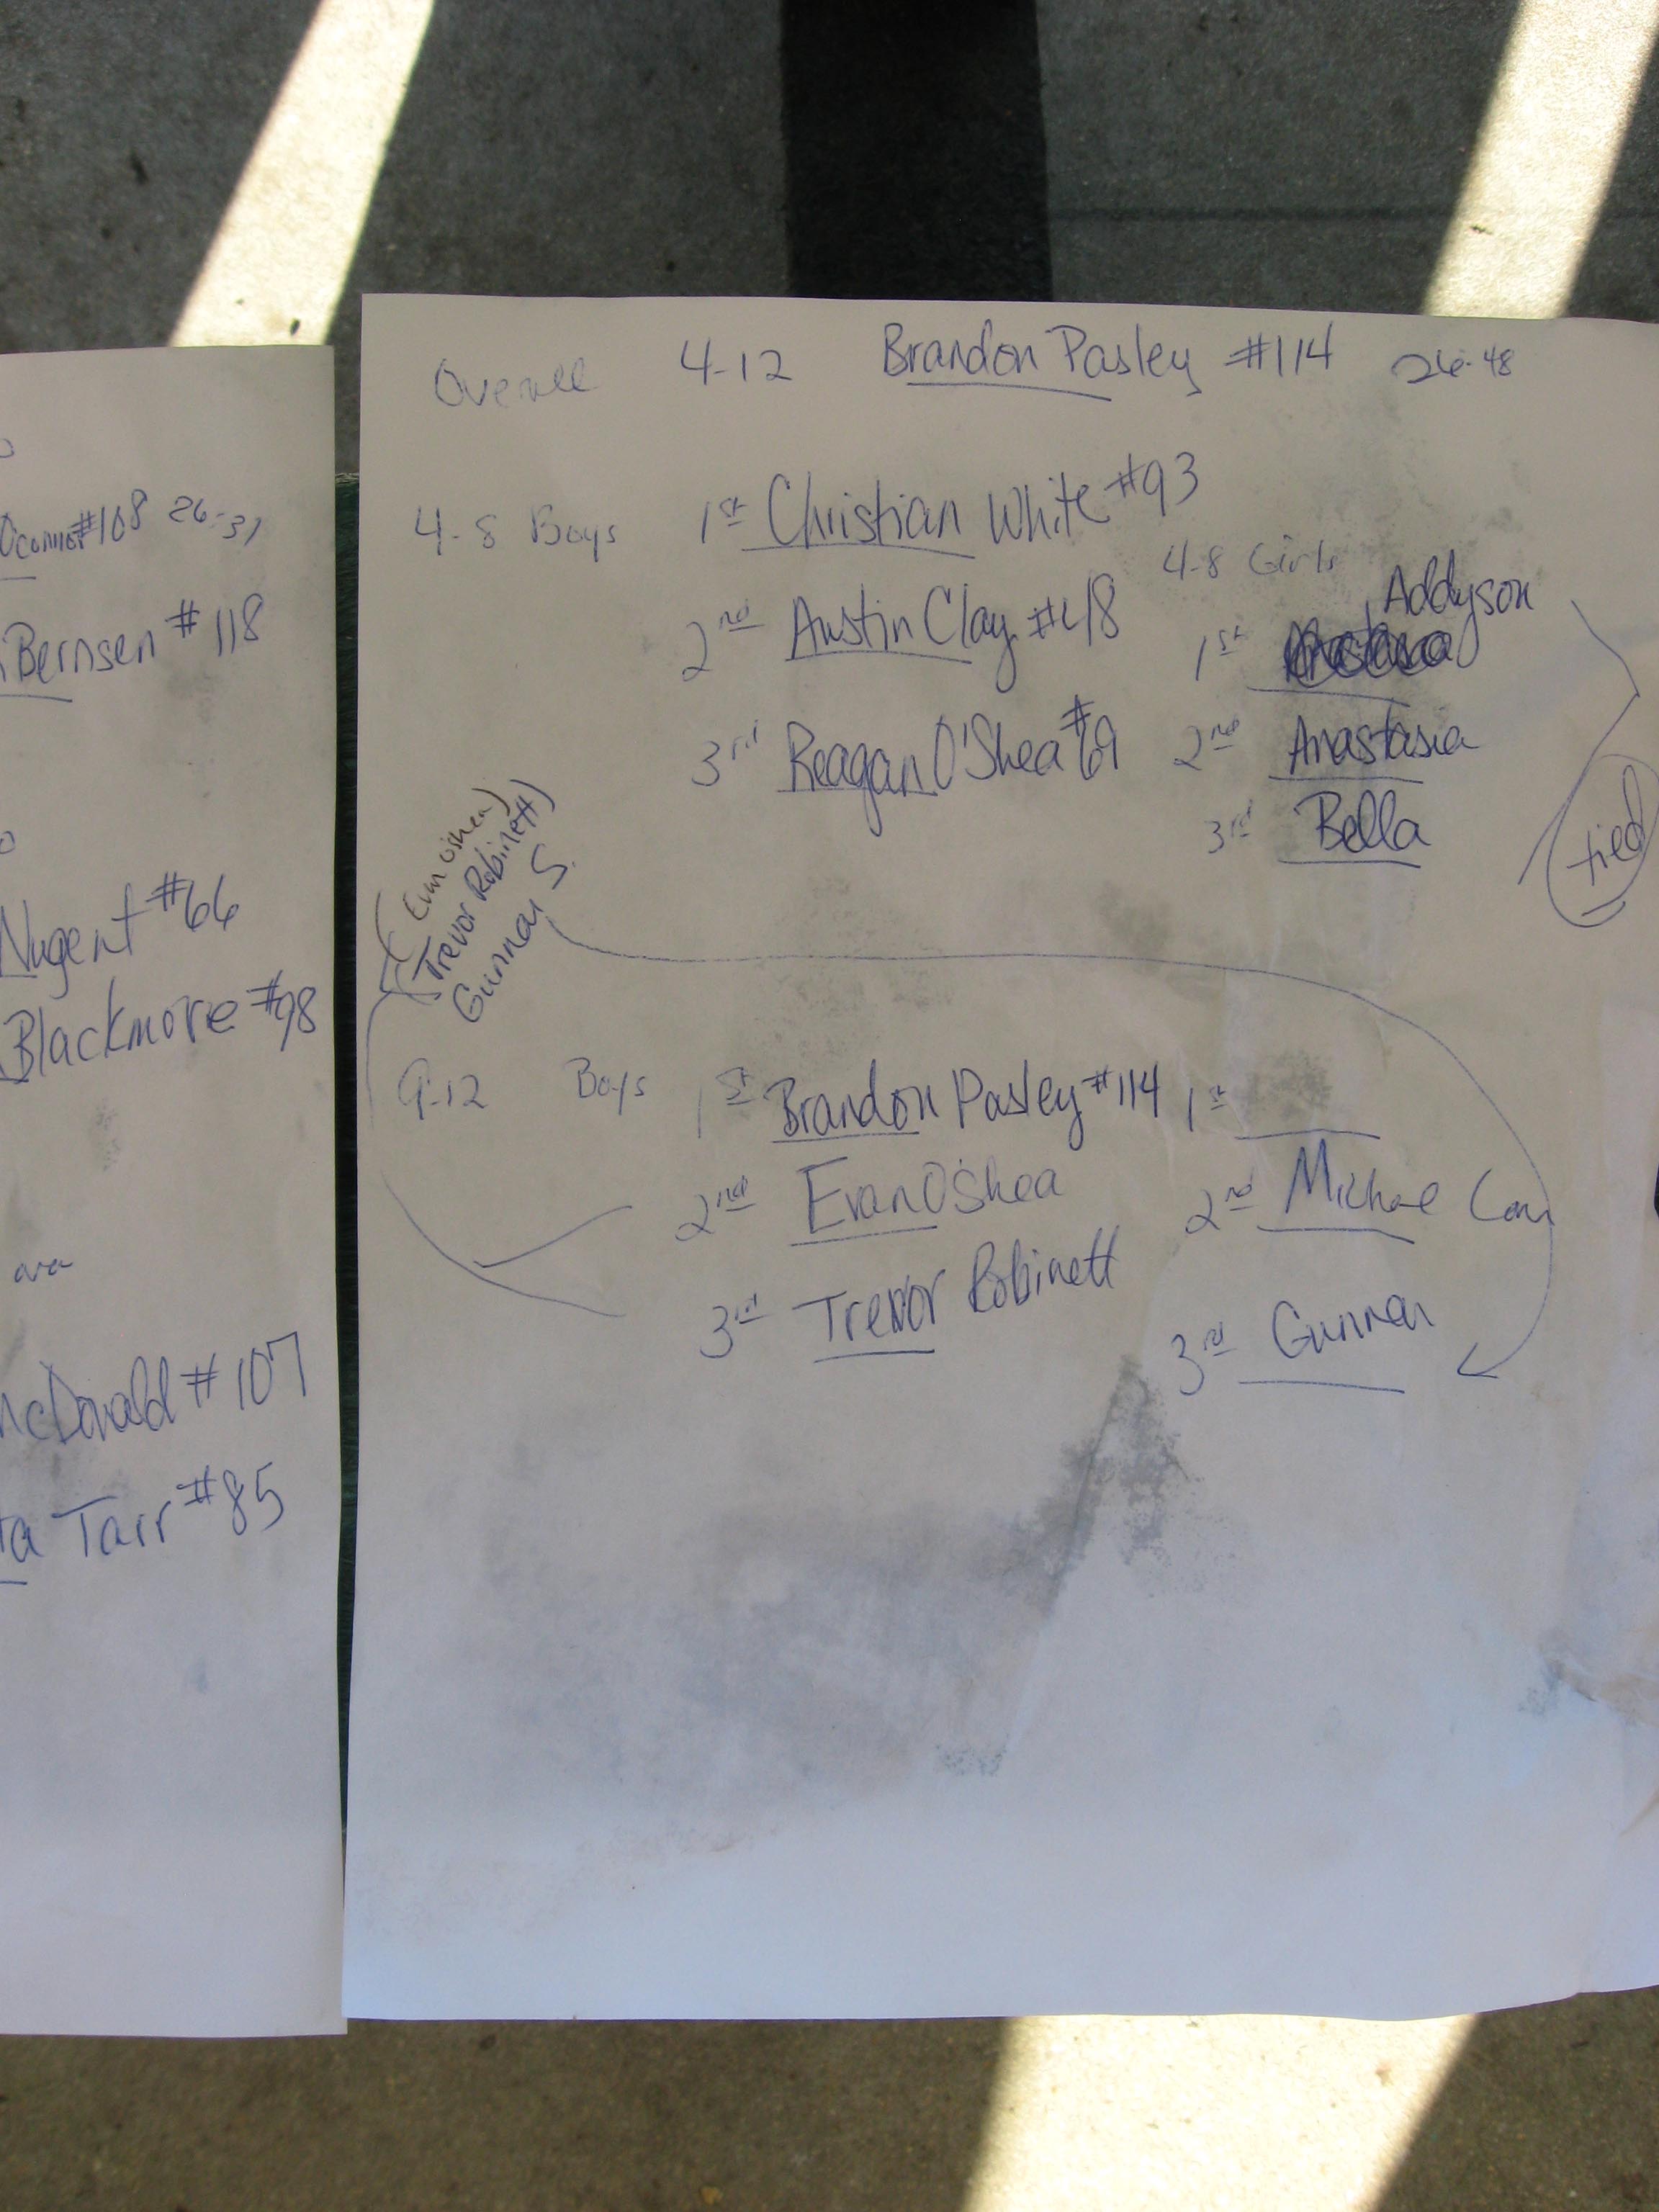 #108 26-31
Bernsen #118
Nugent #66
Blackmore #98
McDonald #107
ta Tarr #85
Overall 4-12 Brandon Pasley #114 26-48
4-8 Boys 1st Christian White #93
2nd Austin Clay #48
3rd Reagan O'Shea #69
4-8 Girls
1st Addyson
2nd Anastasia
3rd Bella
tied
(Evan Oshea)
(Trevor Robinett)
Gunnar S.
9-12 Boys 1st Brandon Pasley #114
2nd Evan O'Shea
3rd Trevor Robinett
1st
2nd
3rd Gunnar